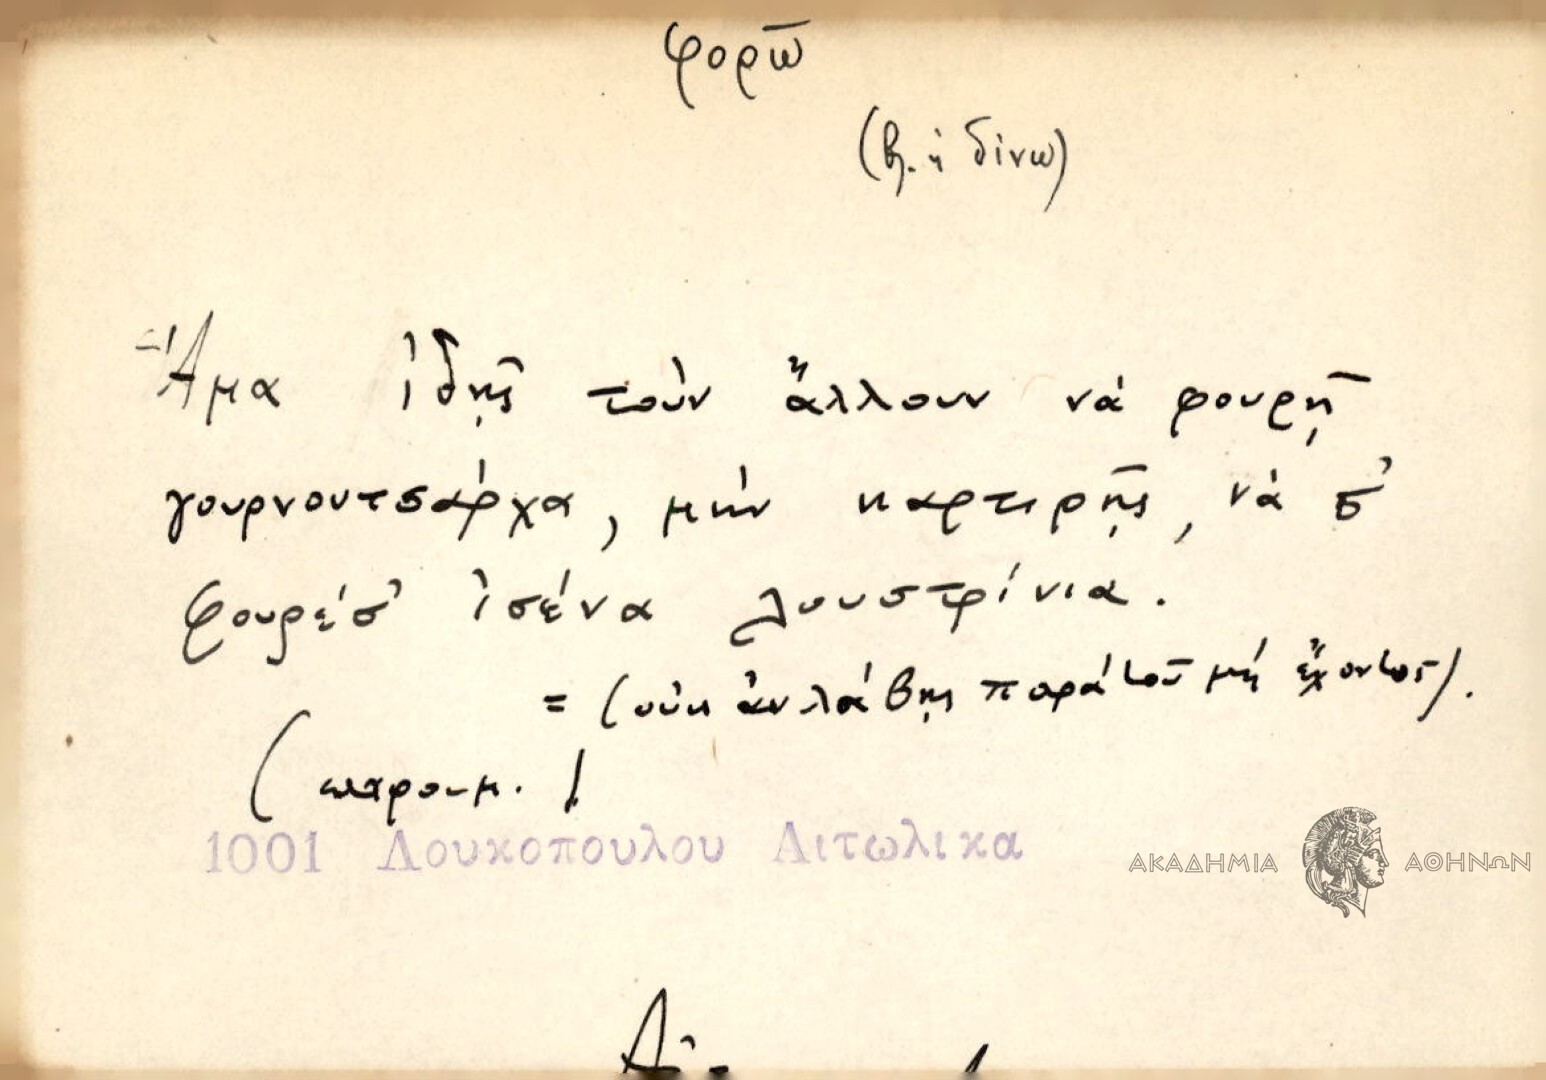 φορῶ
(βλ. ἡ δίνω)
Ἅμα ἰδῇς τοὺν ἄλλουν νὰ φουρῇ
γουρνουτσάρχα, μὴν καρτιρῇς, νὰ σ'
φουρέσ' ἰσένα λουστρίνια.
= (οὐκ ἂν λάβῃς παρὰ τοῦ μὴ ἔχοντος).
(παροιμ.)
1001 Δουκοπουλου Αιτωλικα
ΑΚΑΔΗΜΙΑ ΑΘΗΝΩΝ